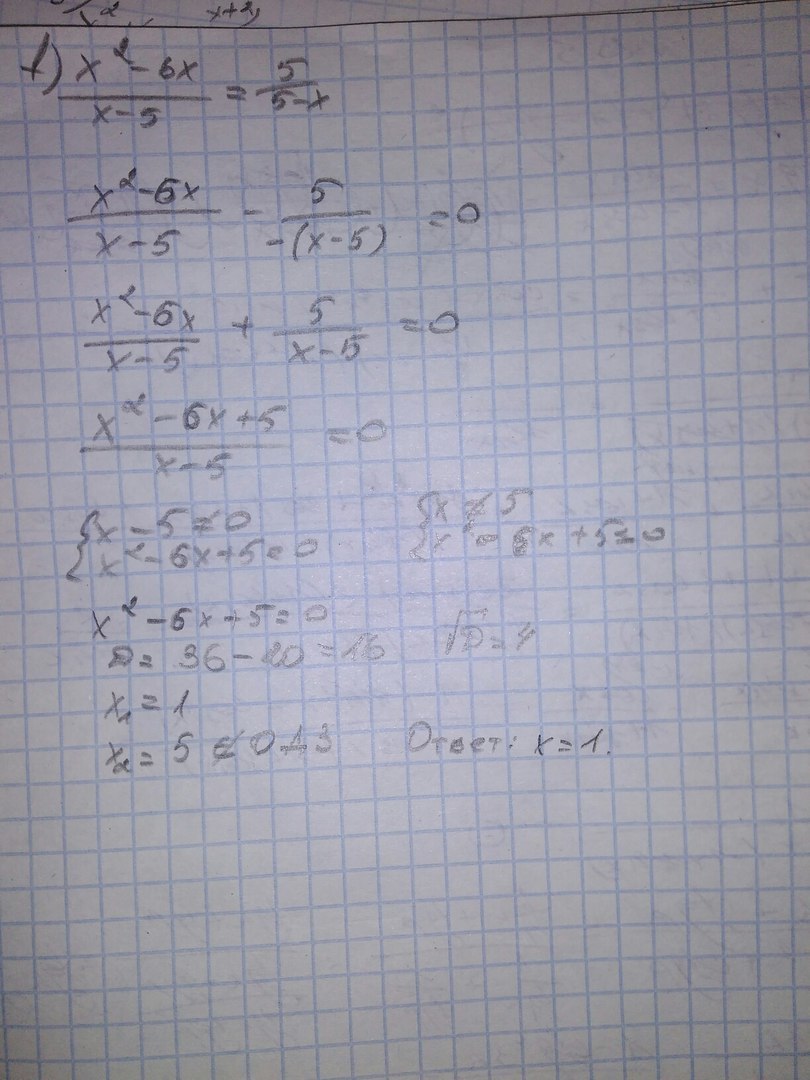 x+2,
1) (x² - 6x)/(x - 5) = 5/(5 - x)
(x² - 6x)/(x - 5) - 5/(-(x - 5)) = 0
(x² - 6x)/(x - 5) + 5/(x - 5) = 0
(x² - 6x + 5)/(x - 5) = 0
{ x - 5 ≠ 0 { x ≠ 5
x² - 6x + 5 = 0 x² - 6x + 5 = 0
x² - 6x + 5 = 0
D = 36 - 20 = 16 √D = 4
x₁ = 1
x₂ = 5 ∉ ОДЗ Ответ: x = 1.